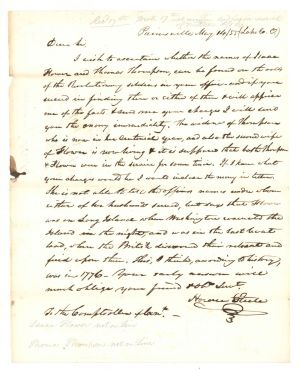 Painesville May 14/55 (Lake Co. O)
Dear Sir
I wish to ascertain whether the names of Isaac
Flower and Thomas Thompson can be found on the rolls
of the Revolutionary soldiers, in your office and if you
succeed in finding them or either of them & will apprise
me of the facts & send me your charges I will send
you the money immediately. The widow of Thompson
who is now in her hundredth year, and also the second wife
of Flower is now living & it is supposed that both Thompson
& Flower were in the service for some time. If I knew what
your charges would be I would inclose the money in letter.
She is not able to tell the officers names under whom
either of her husbands served, but says that Flower
was on Long Island when Washington evacuated the
Island in the night, and was in the last boat
load, when the British discovered their retreat and
fired upon them, this, I think, according to history,
was in 1776 - Your early answer will
much oblige your friend & Obt Servt,
Horace Steele
To the Comptroller
Isaac Flower not on
Thomas Thompson not on